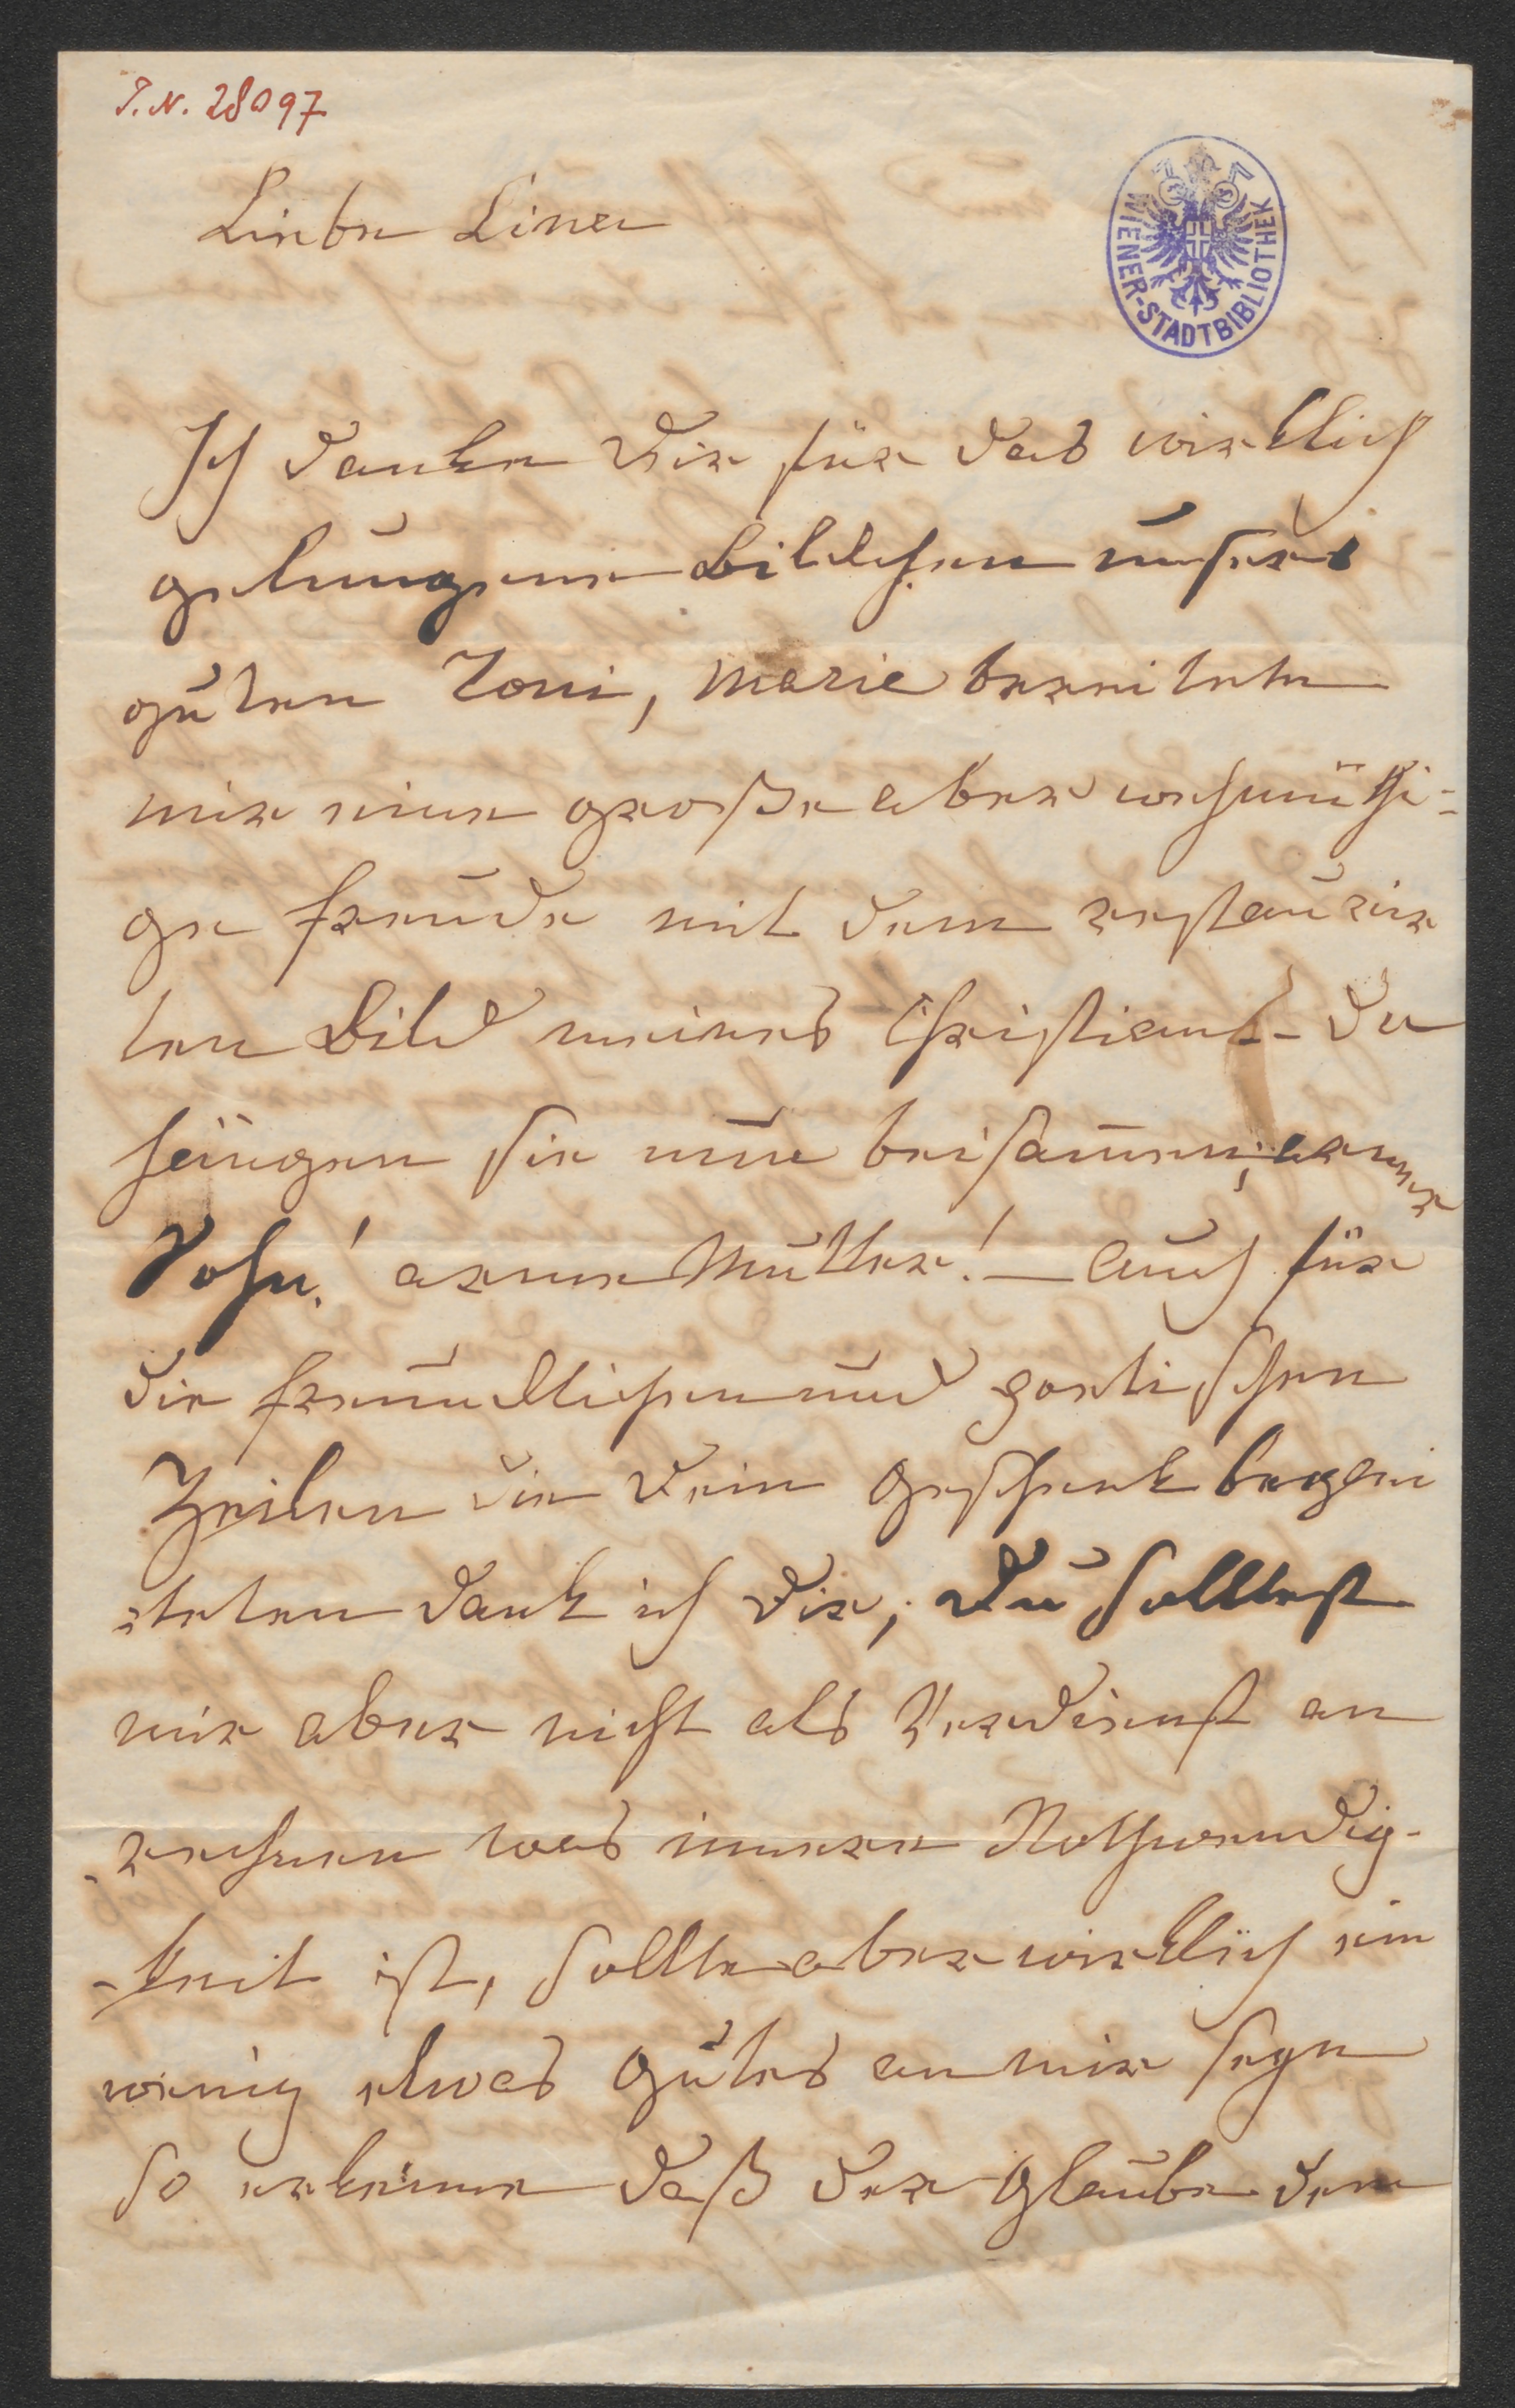 I.N. 28097
Liebe Lina
WIENER-STADTBIBLIOTHEK
Ich danke Dir für das wirklich
gelungene Bildchen unsers
guten Toni, Marie bereitete
mir eine große aber wehmüthi-
ge Freude mit dem restaurir
ten Bild meines Christians - da
hängen sie nun beisamen, armer
Sohn! arme Mutter! - Auch für
die freundlichen und poetischen
Zeilen die Dein Geschenk beglei
teten dank ich Dir; Du solltest
mir aber nicht als Verdienst an
rechnen was innere Nothwendig-
-keit ist, sollte aber wirklich ein
wenig etwas Gutes an mir seyn
so erkenne daß der Glaube den